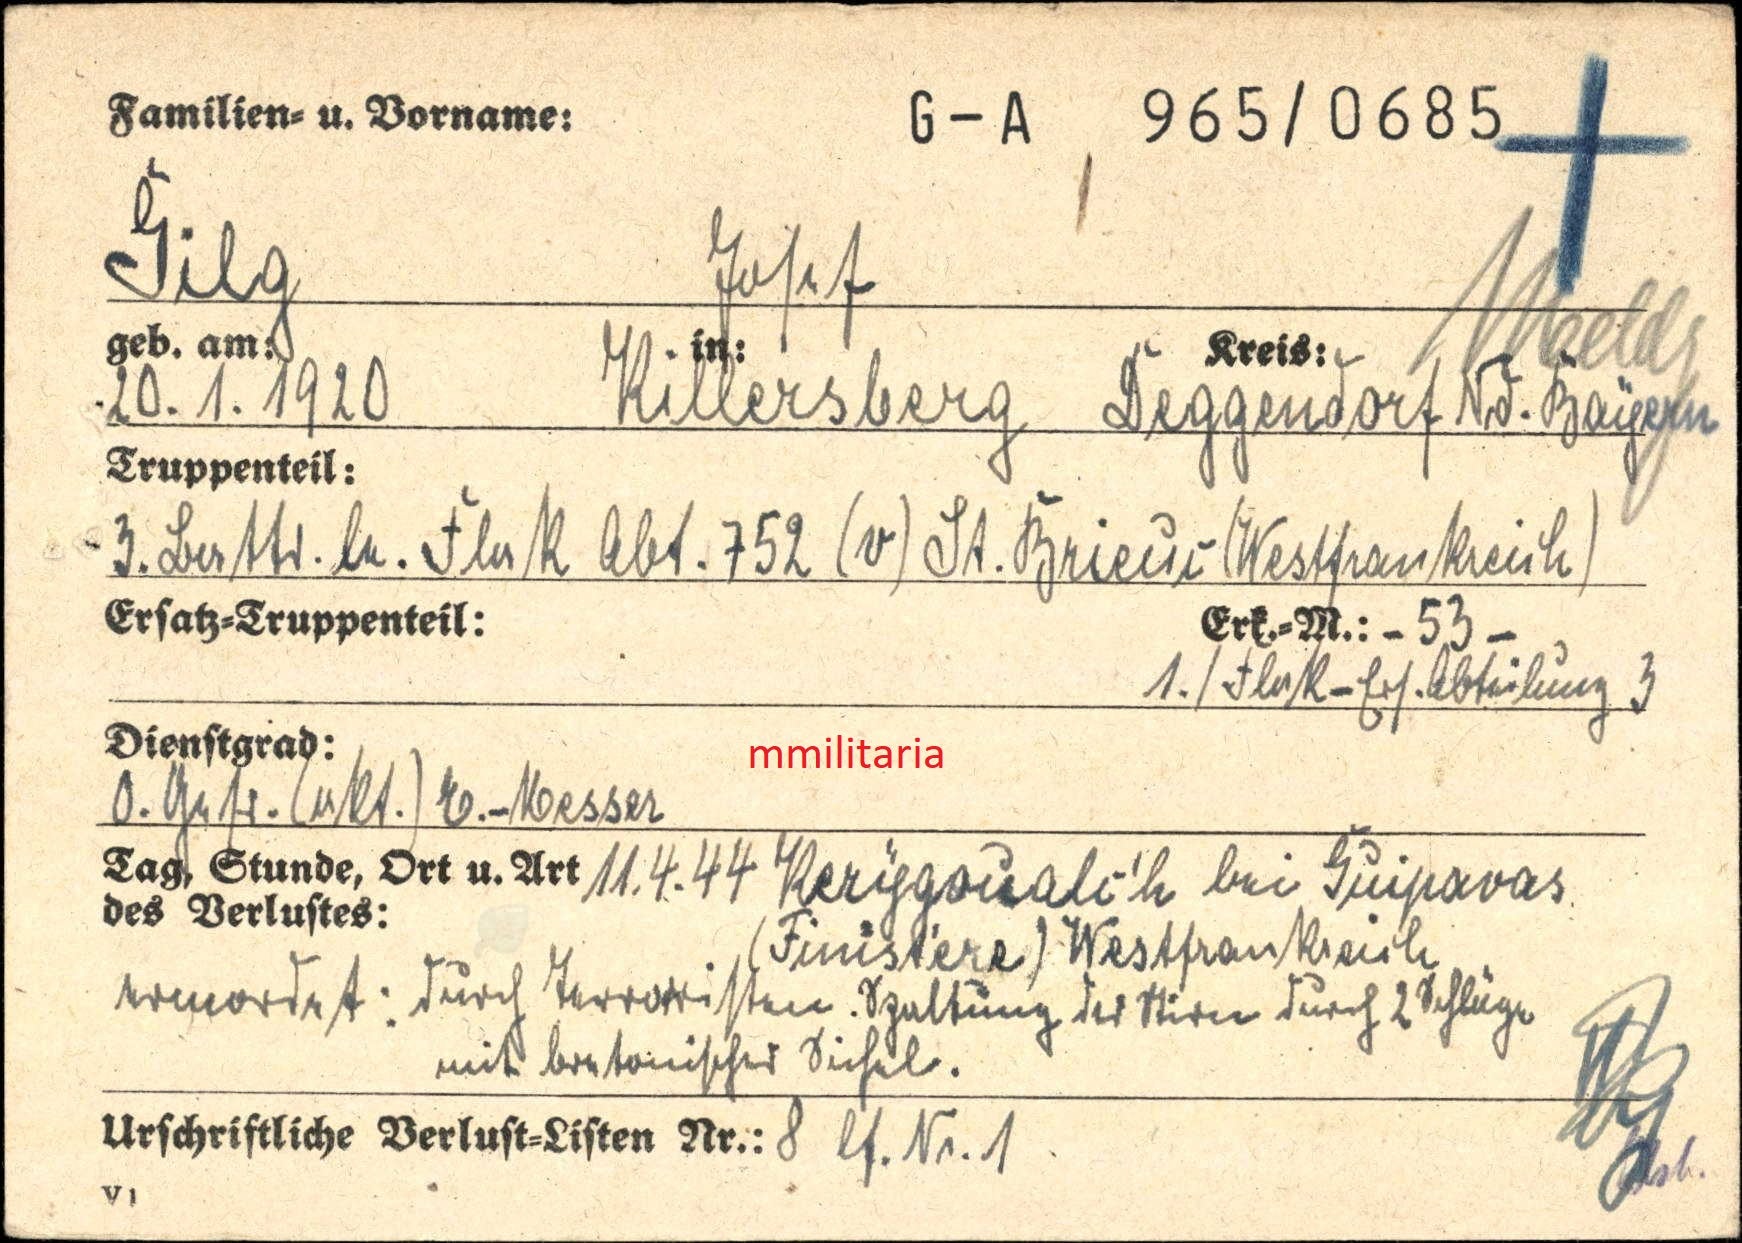 Familien- u. Vorname: G-A 965/0685
Gilg Josef
geb. am: in: Kreis:
20.1.1920 Killersberg Deggendorf Nd. Bayern
Truppenteil:
3. Battr. le. Flak Abt. 752 (v) St. Brieuc (Westfrankreich)
Ersatz-Truppenteil: Erk.-M.: -53-
1./Flak-Ers. Abteilung 3
Dienstgrad:
O. Gefr. (akt.) E.-Messer
Tag, Stunde, Ort u. Art 11.4.44 Kerygoualc'h bei Guipavas
des Verlustes: (Finistère) Westfrankreich
ermordet: durch Terroristen. Spaltung der Stirn durch 2 Schläge
mit bretonischer Sichel.
Urschriftliche Verlust-Listen Nr.: 8 lf. Nr. 1
V 1
mmilitaria